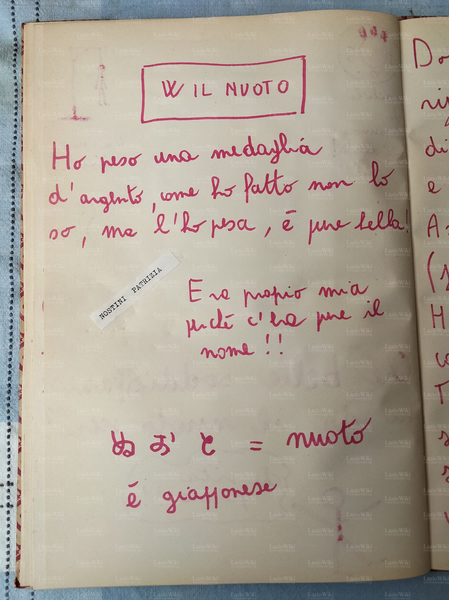 W IL NUOTO
Ho peso una medaglia
d'argento, come ho fatto non lo
so, ma l'ho pesa, é pure bella!
NOSTINI PATRIZIA
Era propio mia
perché c'era pure il
nome!!
ぬ お と = nuoto
é giapponese
Do
e
H
T